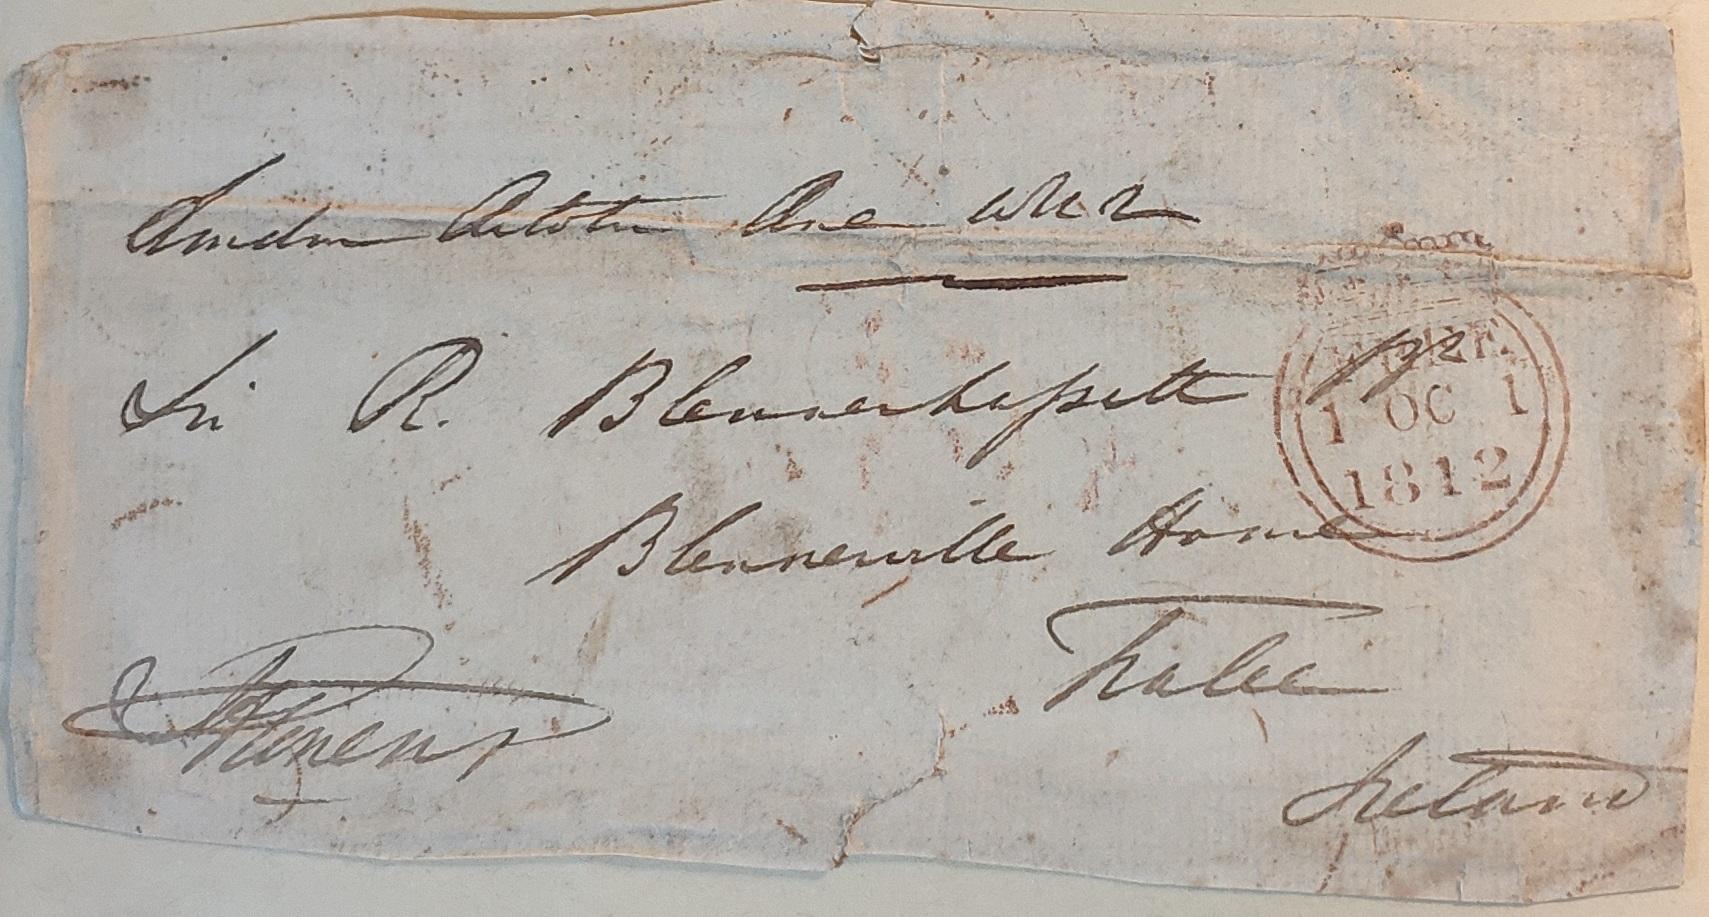 London October One 1812
Sir R. Blennerhassett
Blennerville House
Tralee
Ireland
FREE
1 OC 1
1812